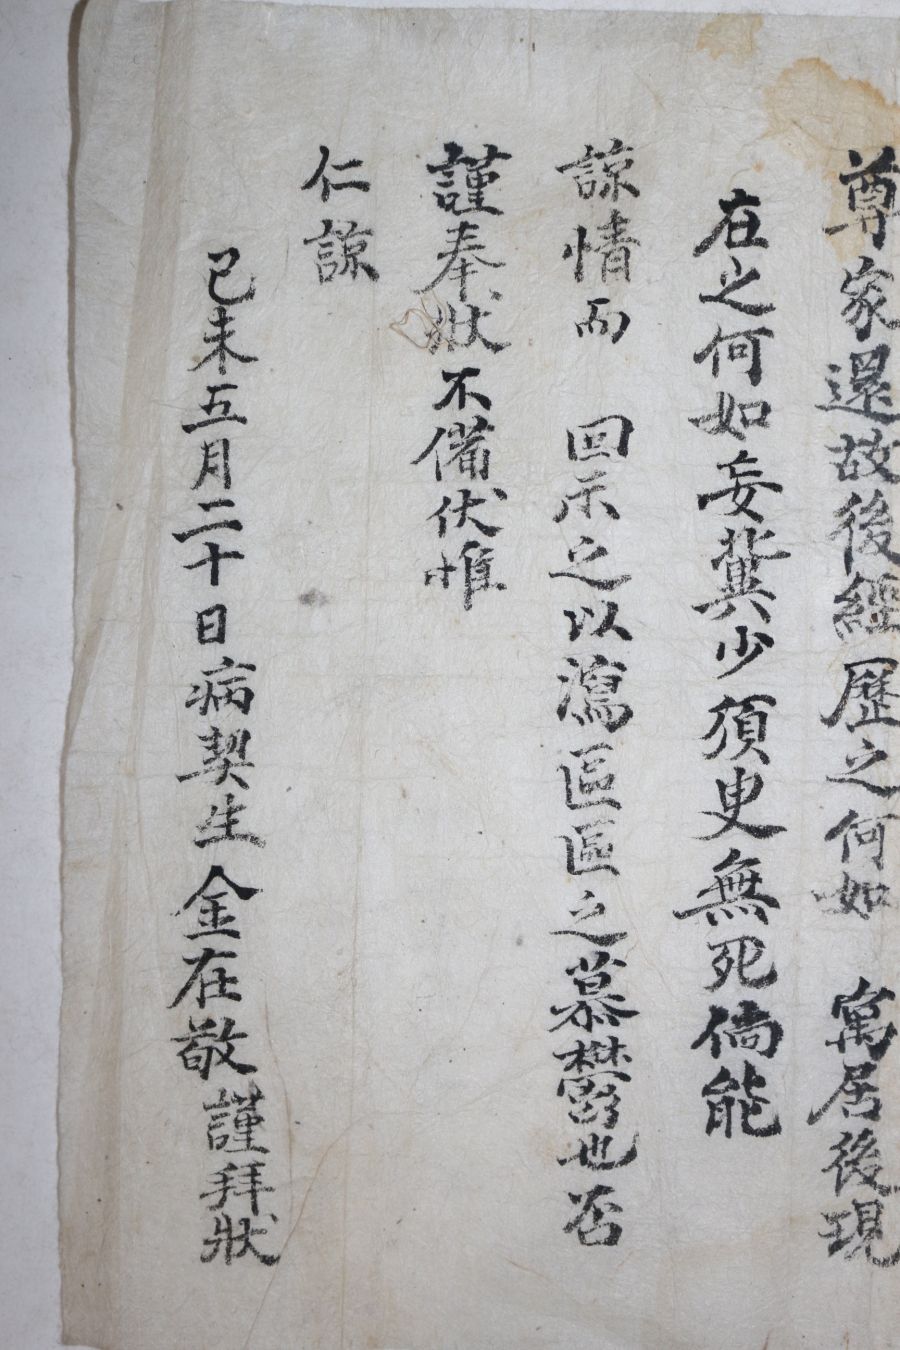 尊家還故後經歷之何如 寓居後現
在之何如妄冀少須臾無死倘能
諒情而 回示之以瀉區區之慕鬱也否
謹奉狀不備伏惟
仁諒
己未五月二十日病契生金在敬謹拜狀